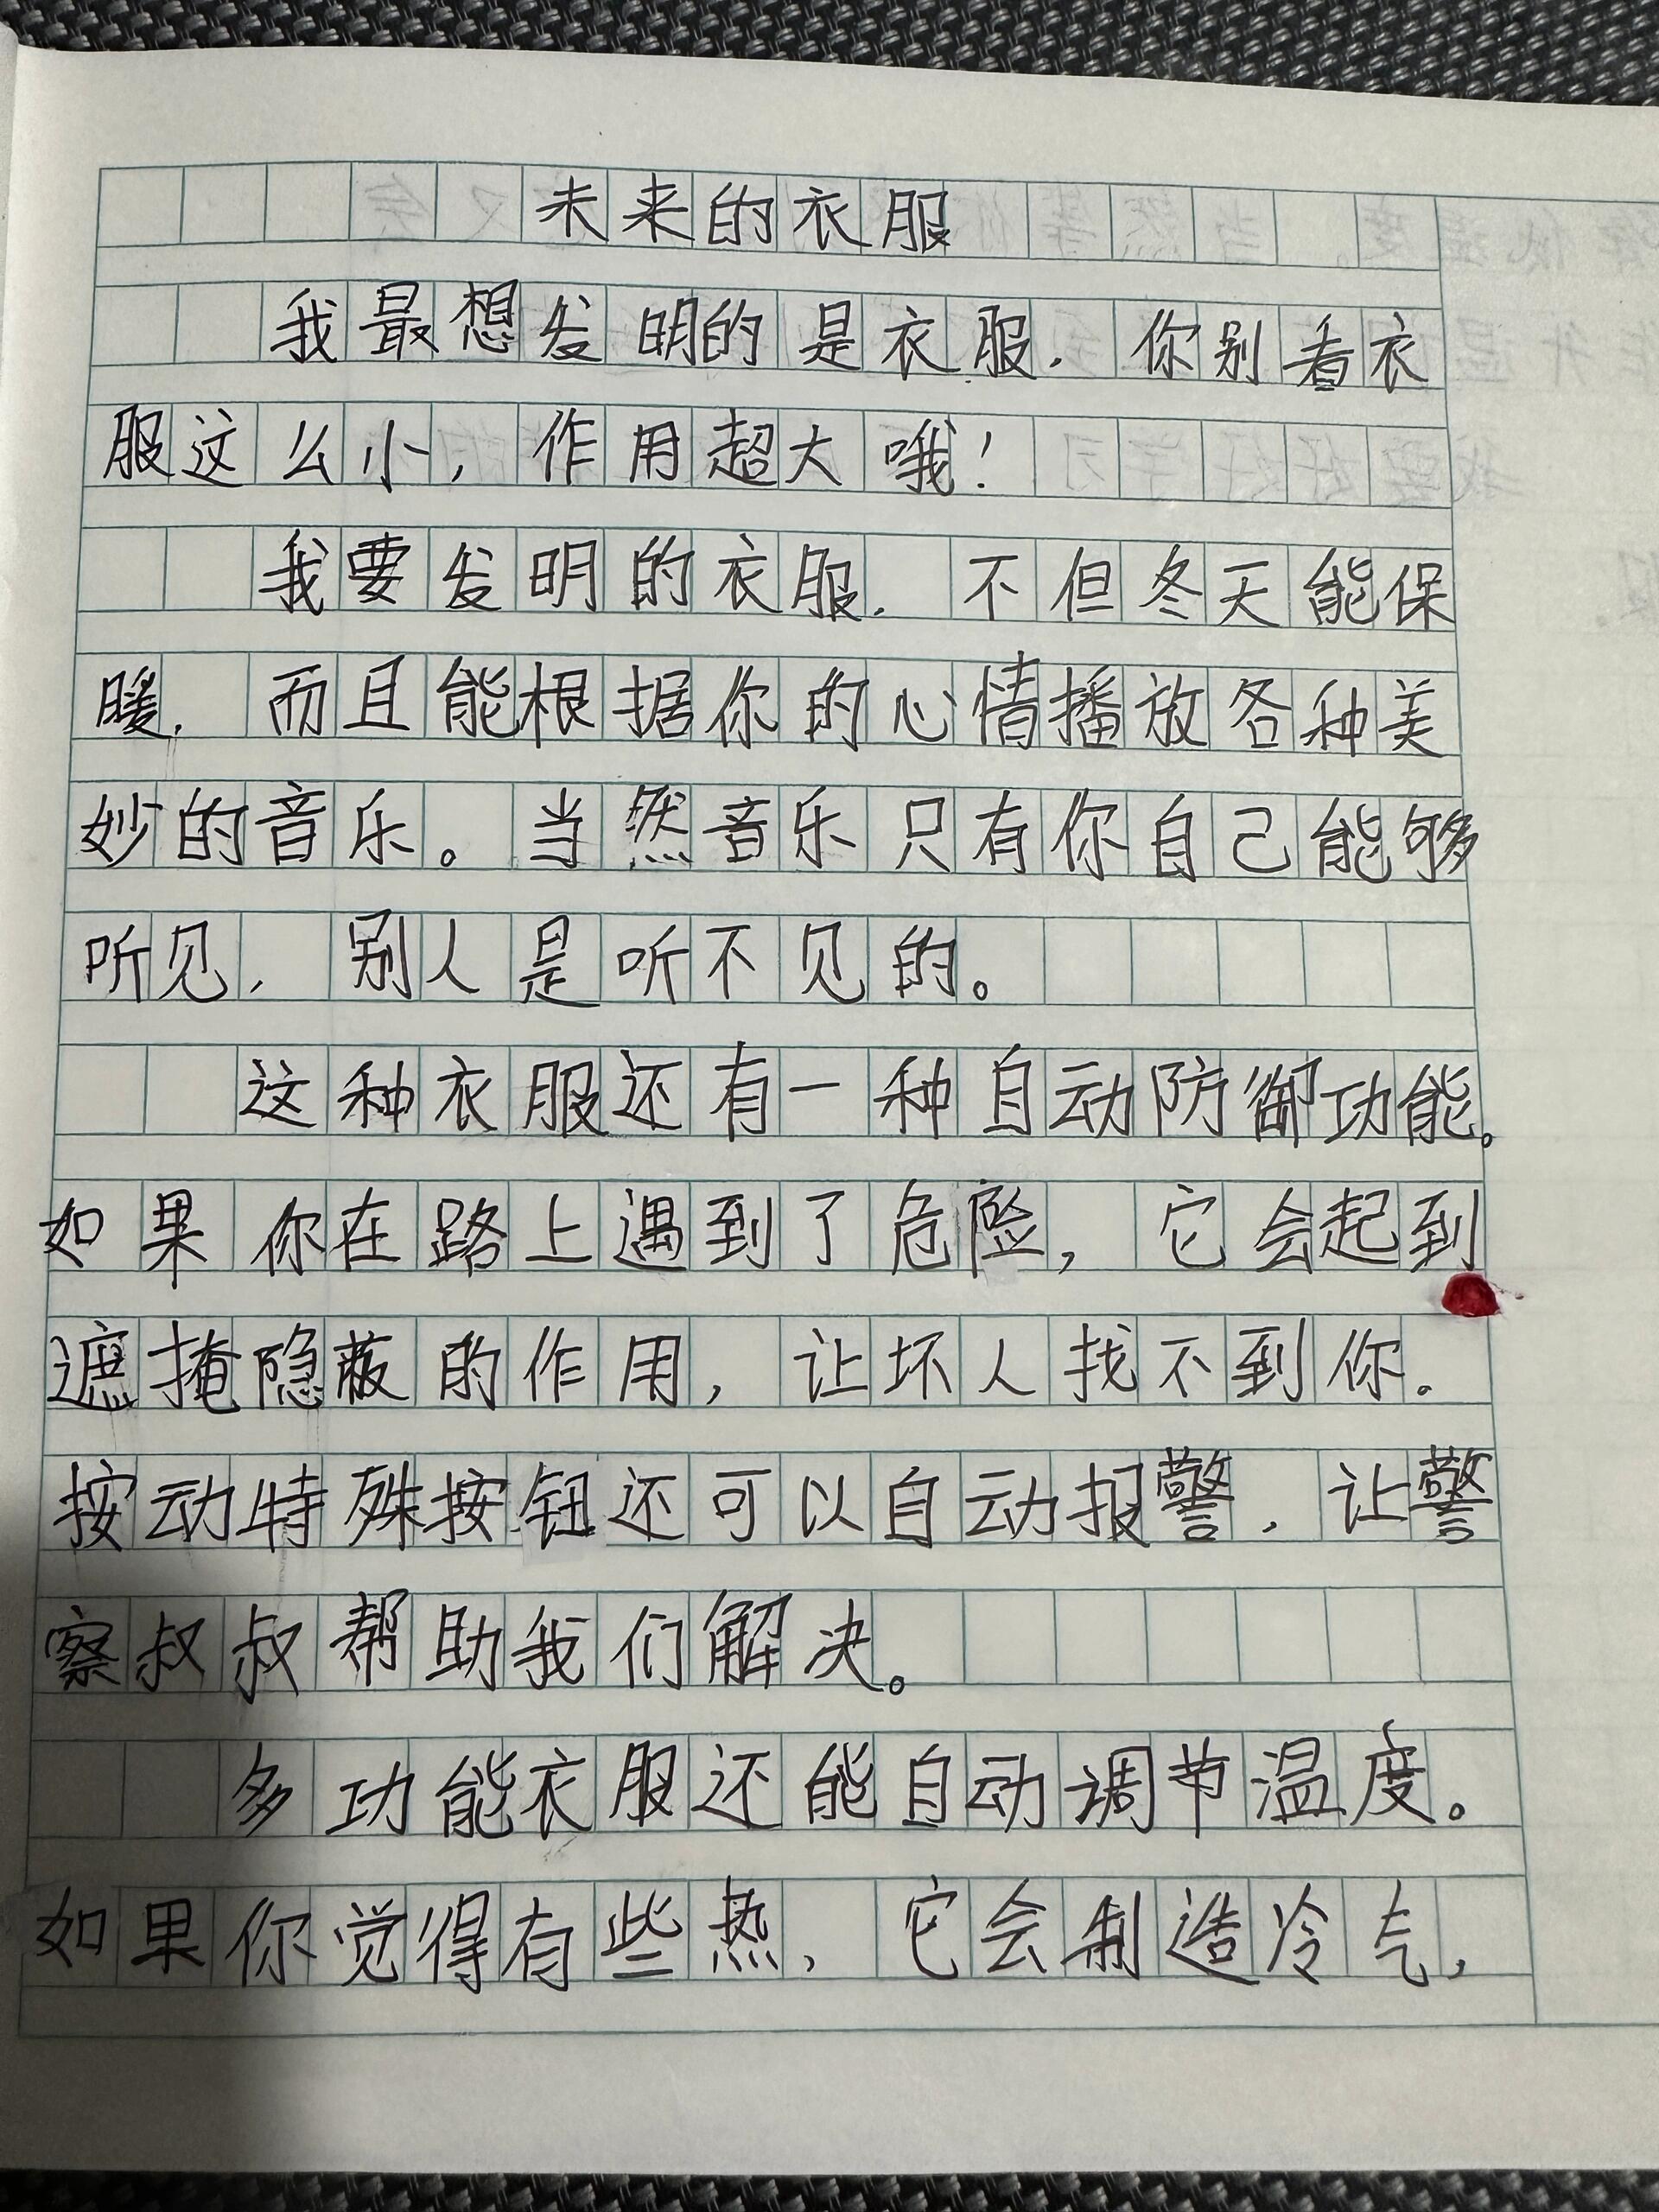 未来的衣服
我最想发明的是衣服，你别看衣
服这么小，作用超大哦！
我要发明的衣服，不但冬天能保
暖，而且能根据你的心情播放各种美
妙的音乐。当然音乐只有你自己能够
听见，别人是听不见的。
这种衣服还有一种自动防御功能。
如果你在路上遇到了危险，它会起到
遮掩隐蔽的作用，让坏人找不到你。
按动特殊按钮还可以自动报警，让警
察叔叔帮助我们解决。
多功能衣服还能自动调节温度。
如果你觉得有些热，它会制造冷气，